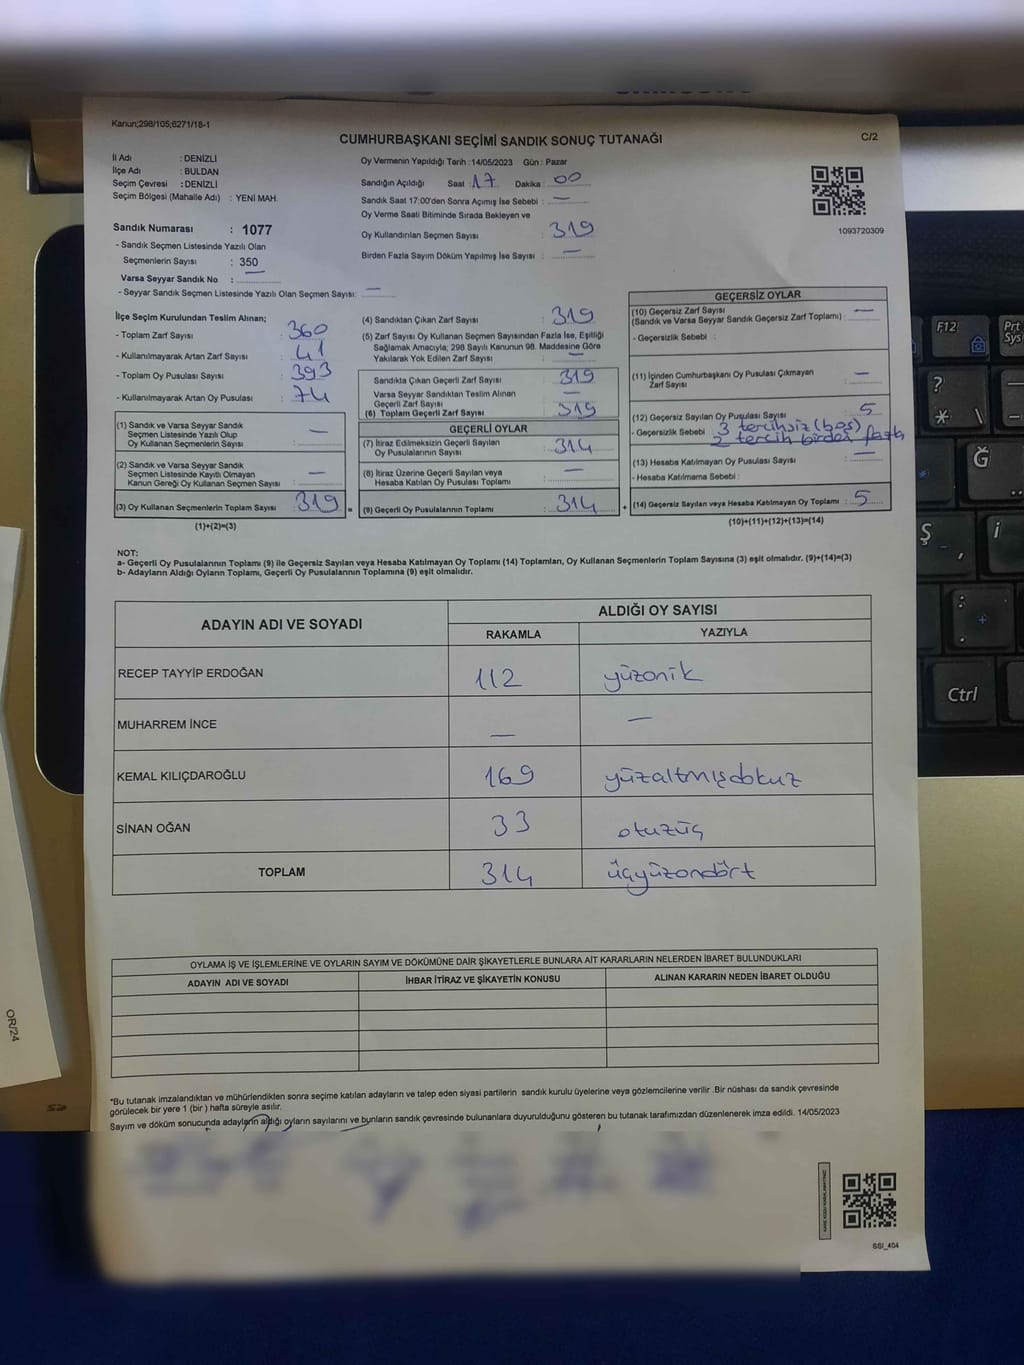 Kanun;298/105;6271/18-1
CUMHURBAŞKANI SEÇİMİ SANDIK SONUÇ TUTANAĞI
C/2
İl Adı : DENİZLİ
İlçe Adı : BULDAN
Seçim Çevresi : DENİZLİ
Seçim Bölgesi (Mahalle Adı) : YENİ MAH.
Sandık Numarası : 1077
- Sandık Seçmen Listesinde Yazılı Olan
Seçmenlerin Sayısı : 350
Varsa Seyyar Sandık No : —
- Seyyar Sandık Seçmen Listesinde Yazılı Olan Seçmen Sayısı: —
Oy Vermenin Yapıldığı Tarih :14/05/2023 Gün : Pazar
Sandığın Açıldığı Saat : 17 Dakika : 00
Sandık Saat 17:00'den Sonra Açımış İse Sebebi : —
Oy Verme Saati Bitiminde Sırada Bekleyen ve
Oy Kullandırılan Seçmen Sayısı : 319
Birden Fazla Sayım Döküm Yapılmış İse Sayısı : —
1093720309
İlçe Seçim Kurulundan Teslim Alınan;
- Toplam Zarf Sayısı : 360
- Kullanılmayarak Artan Zarf Sayısı : 41
- Toplam Oy Pusulası Sayısı : 393
- Kullanılmayarak Artan Oy Pusulası : 74
(1) Sandık ve Varsa Seyyar Sandık
Seçmen Listesinde Yazılı Olup
Oy Kullanan Seçmenlerin Sayısı : —
(2) Sandık ve Varsa Seyyar Sandık
Seçmen Listesinde Kayıtlı Olmayan
Kanun Gereği Oy Kullanan Seçmen Sayısı : —
(3) Oy Kullanan Seçmenlerin Toplam Sayısı : 319 =
(1)+(2)=(3)
(4) Sandıktan Çıkan Zarf Sayısı : 319
(5) Zarf Sayısı Oy Kullanan Seçmen Sayısından Fazla İse, Eşitliği
Sağlamak Amacıyla; 298 Sayılı Kanunun 98. Maddesine Göre
Yakılarak Yok Edilen Zarf Sayısı : —
Sandıkta Çıkan Geçerli Zarf Sayısı : 319
Varsa Seyyar Sandıktan Teslim Alınan
Geçerli Zarf Sayısı : —
(6) Toplam Geçerli Zarf Sayısı : 319
GEÇERLİ OYLAR
(7) İtiraz Edilmeksizin Geçerli Sayılan
Oy Pusulalarının Sayısı : 314
(8) İtiraz Üzerine Geçerli Sayılan veya
Hesaba Katılan Oy Pusulası Toplamı : —
(9) Geçerli Oy Pusulalarının Toplamı : 314 +
GEÇERSİZ OYLAR
(10) Geçersiz Zarf Sayısı
(Sandık ve Varsa Seyyar Sandık Geçersiz Zarf Toplamı) : —
- Geçersizlik Sebebi :
(11) İçinden Cumhurbaşkanı Oy Pusulası Çıkmayan
Zarf Sayısı : —
(12) Geçersiz Sayılan Oy Pusulası Sayısı : 5
- Geçersizlik Sebebi : 3 tercihsiz (boş)
2 tercih birden fazla
(13) Hesaba Katılmayan Oy Pusulası Sayısı : —
- Hesaba Katılmama Sebebi :
(14) Geçersiz Sayılan veya Hesaba Katılmayan Oy Toplamı : 5
(10)+(11)+(12)+(13)=(14)
NOT:
a- Geçerli Oy Pusulalarının Toplamı (9) ile Geçersiz Sayılan veya Hesaba Katılmayan Oy Toplamı (14) Toplamları, Oy Kullanan Seçmenlerin Toplam Sayısına (3) eşit olmalıdır. (9)+(14)=(3)
b- Adayların Aldığı Oyların Toplamı, Geçerli Oy Pusulalarının Toplamına (9) eşit olmalıdır.
ADAYIN ADI VE SOYADI
ALDIĞI OY SAYISI
RAKAMLA YAZIYLA
RECEP TAYYİP ERDOĞAN 112 yüzonik
MUHARREM İNCE — —
KEMAL KILIÇDAROĞLU 169 yüzaltmışdokuz
SİNAN OĞAN 33 otuzüç
TOPLAM 314 üçyüzondört
OYLAMA İŞ VE İŞLEMLERİNE VE OYLARIN SAYIM VE DÖKÜMÜNE DAİR ŞİKAYETLERLE BUNLARA AİT KARARLARIN NELERDEN İBARET BULUNDUKLARI
ADAYIN ADI VE SOYADI İHBAR İTİRAZ VE ŞİKAYETİN KONUSU ALINAN KARARIN NEDEN İBARET OLDUĞU
*Bu tutanak imzalandıktan ve mühürlendikten sonra seçime katılan adayların ve talep eden siyasi partilerin sandık kurulu üyelerine veya gözlemcilerine verilir .Bir nüshası da sandık çevresinde
görülecek bir yere 1 (bir ) hafta süreyle asılır.
Sayım ve döküm sonucunda adayların aldığı oyların sayılarını ve bunların sandık çevresinde bulunanlara duyurulduğunu gösteren bu tutanak tarafımızdan düzenlenerek imza edildi. 14/05/2023
SSI_404
OR/24
F12
Prt
Sys
?
*
\
—
Ğ
Ş
,
İ
:
.
+
Ctrl